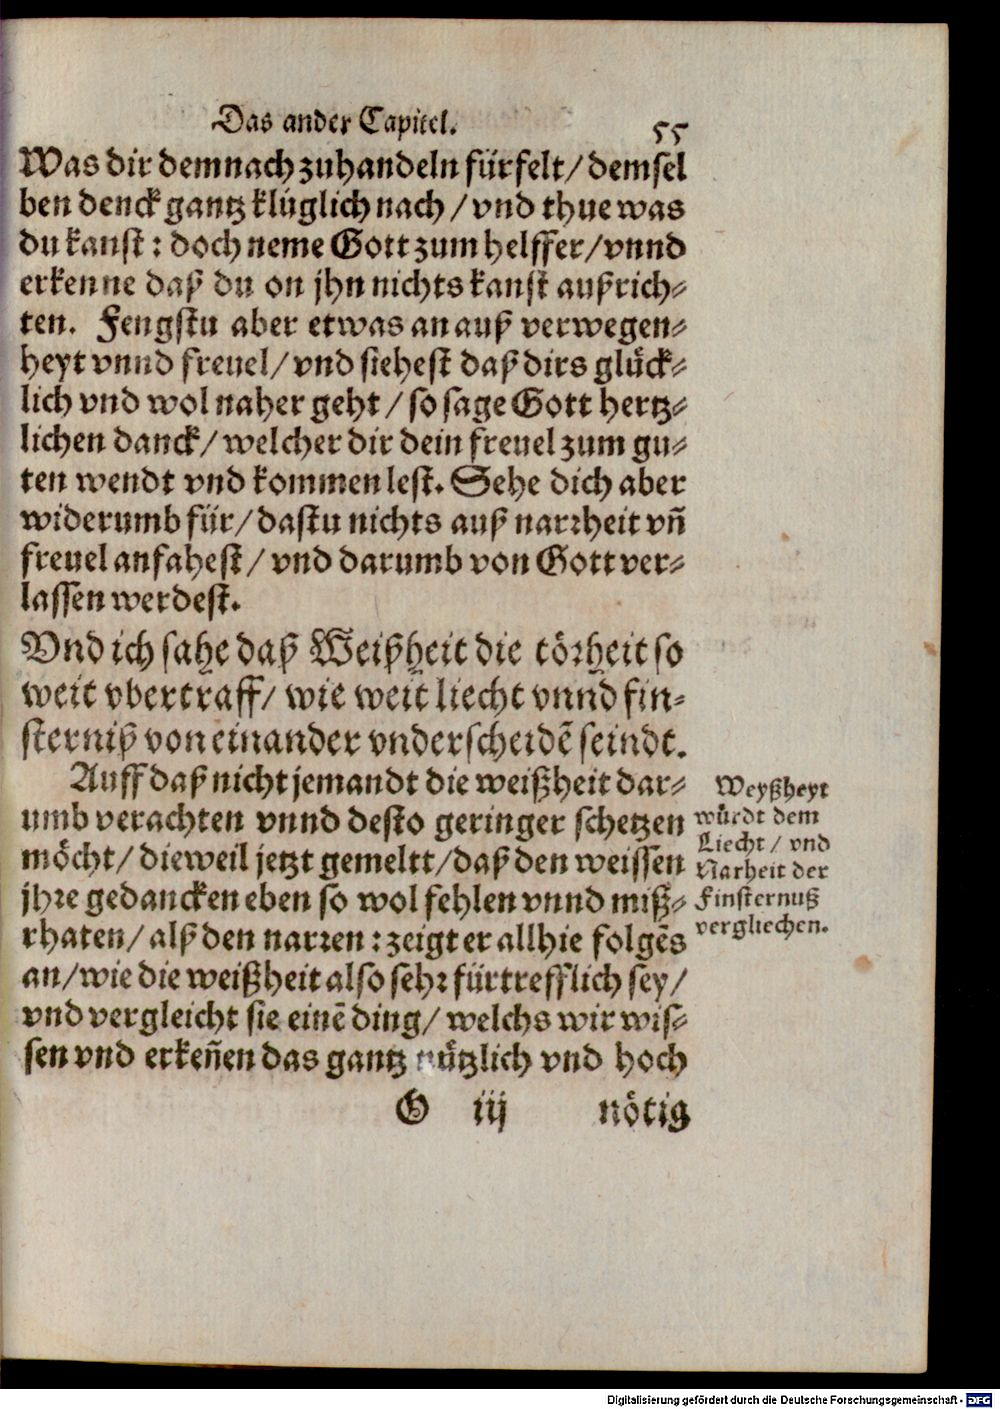 Das ander Capitel. 55
Was dir demnach zuhandeln fürfelt/ demsel
ben denck gantz klůglich nach / vnd thue was
du kanst : doch neme Gott zum helffer/ vnnd
erkenne daß du on jhn nichts kanst außrich⸗
ten. Fengstu aber etwas an auß verwegen⸗
heyt vnnd freuel/ vnd siehest daß dirs glůck⸗
lich vnd wol naher geht / so sage Gott hertz⸗
lichen danck/ welcher dir dein freuel zum gu⸗
ten wendt vnd kommen lest. Sehe dich aber
widerumb für/ dastu nichts auß narꝛheit vñ
freuel anfahest / vnd darumb von Gott ver⸗
lassen werdest.
Vnd ich sahe daß Weißheit die tôꝛheit so
weit vbertraff/ wie weit liecht vnnd fin⸗
sterniß von einander vnderscheidẽ seindt.
Auff daß nicht jemandt die weißheit dar⸗
umb verachten vnnd desto geringer schetzen
môcht/ dieweil jetzt gemeltt/ daß den weissen
jhꝛe gedancken eben so wol fehlen vnnd miß⸗
rhaten/ alß den narꝛen : zeigt er allhie folgẽs
an/ wie die weißheit also sehꝛ fürtrefflich sey/
vnd vergleicht sie einẽ ding/ welchs wir wis⸗
sen vnd erkeñen das gantz nůtzlich vnd hoch
G iij nôtig
Weyßheyt
würdt dem
Liecht / vnd
Narheit der
Finsternuß
vergliechen.
Digitalisierung gefördert durch die Deutsche Forschungsgemeinschaft - DFG